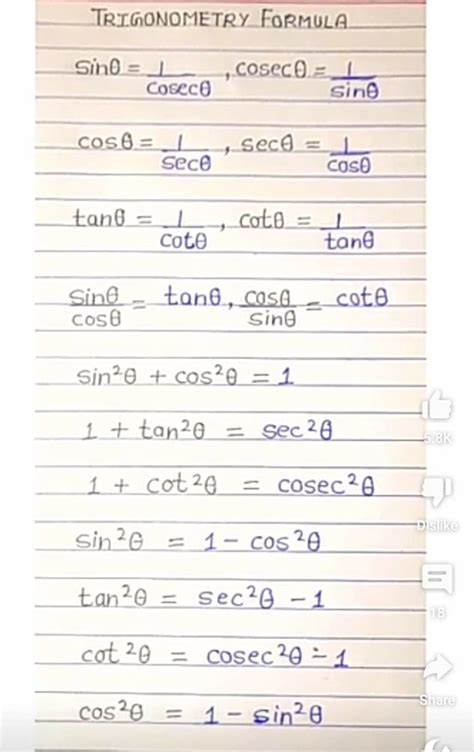 TRIGONOMETRY FORMULA
sinθ = 1/cosecθ , cosecθ = 1/sinθ
cosθ = 1/secθ , secθ = 1/cosθ
tanθ = 1/cotθ , cotθ = 1/tanθ
sinθ/cosθ = tanθ, cosθ/sinθ = cotθ
sin²θ + cos²θ = 1
1 + tan²θ = sec²θ
5.8K
1 + cot²θ = cosec²θ
Dislike
sin²θ = 1 - cos²θ
tan²θ = sec²θ - 1
18
cot²θ = cosec²θ - 1
Share
cos²θ = 1 - sin²θ